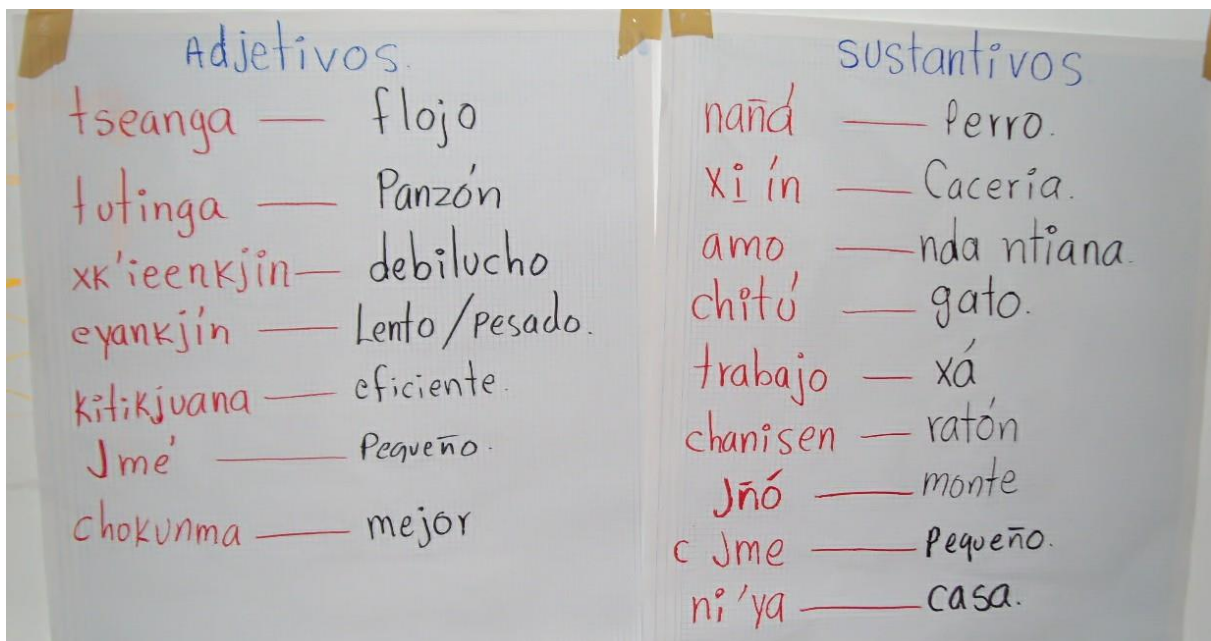 Adjetivos.
tseanga — flojo
tutinga — Panzón
xk'ieenkjín — debilucho
eyankjín — Lento/pesado.
kitikjuana — eficiente.
Jmé — Pequeño.
chokunma — mejor
sustantivos
nañá — Perro.
xi̱ ín — Cacería.
amo — nda ntiana.
chitú — gato.
trabajo — xá
chanisen — ratón
Jñó — monte
c Jme — Pequeño.
ni'ya — casa.